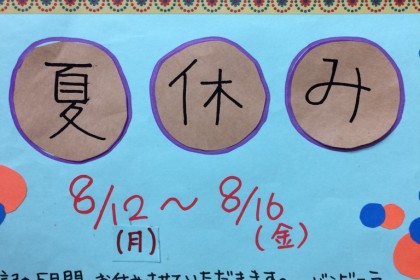 夏休み
8/12〜8/16
(月) (金)
記の5日間、お休みさせていただきます。 バンビーニ